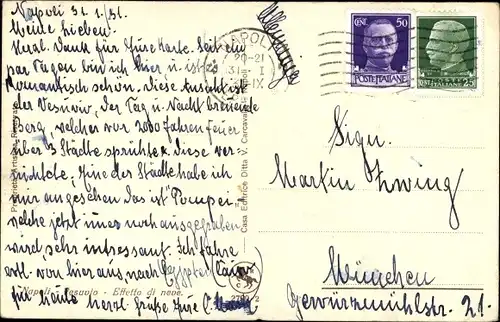 Napoli 31.1./31.
Meine Lieben!
Herzl. Dank für Ihre Karte. Seit ein
par Tagen bin ich hier u. ist es
Romantisch schön, diese Ansicht ist
der Vesuviv, der Tag u. Nacht brennende
Berg, welcher vor 2000 Jahren Feuer
über 3 Städte sprühte u. diese ver-
nichtete, Eine der Städte habe ich
mir angesehen das ist "Pompei"
welche jetzt immer noch ausgegraben
wird, sehr intressant. Ich fahre
evtl. von hier aus nach Egypten (Cairo)
für heute herzl. Grüße Ihre
Napoli - Vesuvio - Effetto di neve.
Proprietà artistica Riservata
Casa Editrice Ditta Carcavallo Napoli
NAPOLI
20-21
31 I
IX
CENT. 50
POSTE ITALIANE
POSTE ITALIANE
25
Sign.
Martin
München
Gewürzmühlstr. 21-